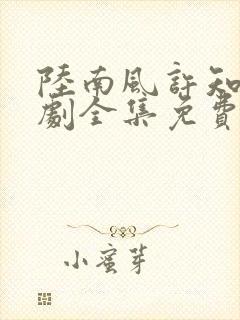 陸南風許知
劇全集免費
小蜜芽